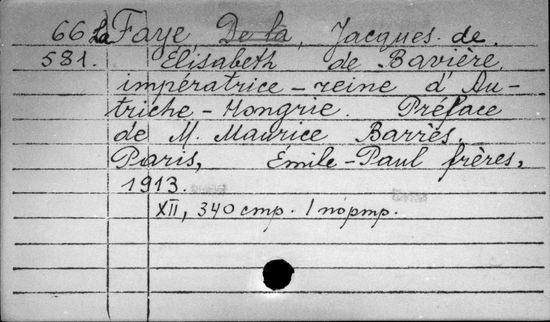 66 La Faye De la, Jacques de.
581. Élisabeth de Bavière,
impératrice-reine d'Au-
triche-Hongrie. Préface
de M. Maurice Barrès.
Paris, Émile-Paul frères,
1913.
XII, 340 стр. 1 портр.